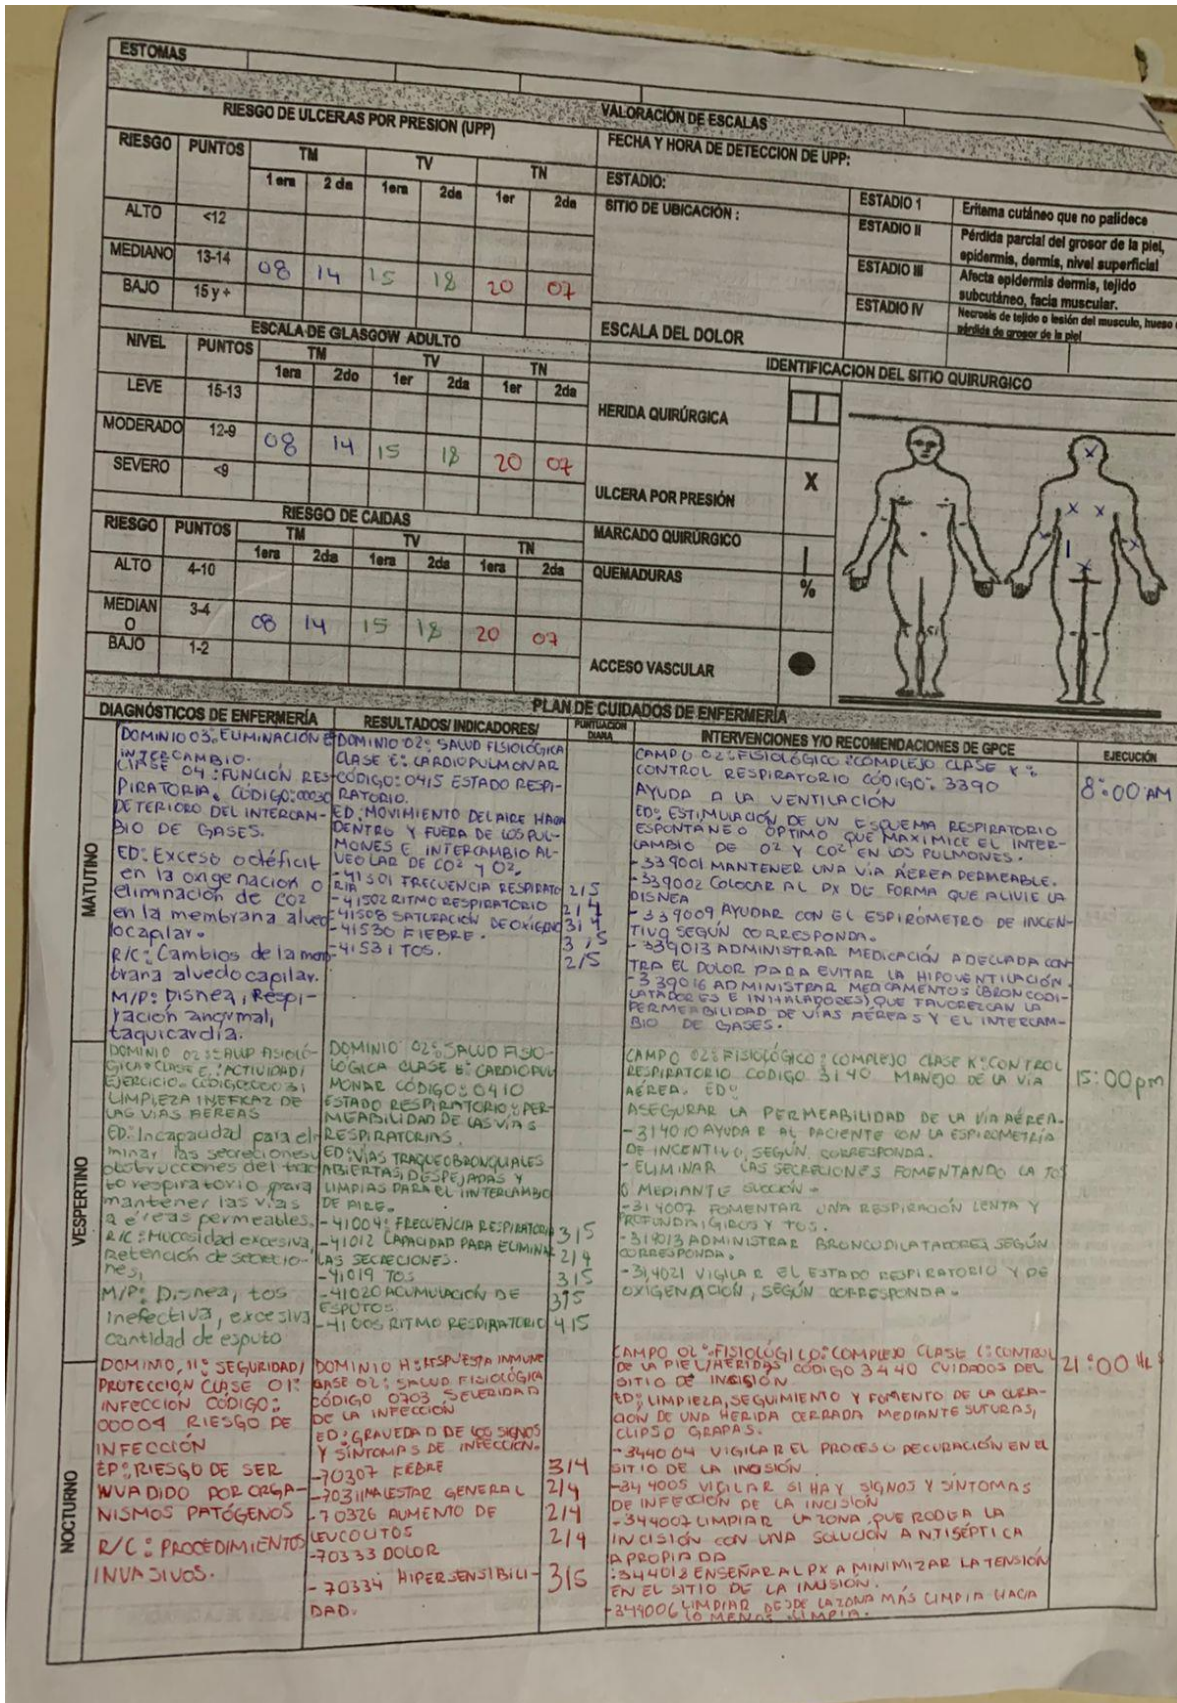 ESTOMAS
VALORACIÓN DE ESCALAS
RIESGO DE ULCERAS POR PRESION (UPP)
RIESGO PUNTOS TM TV TN
1 era 2 da 1era 2da 1er 2da
ALTO <12
MEDIANO 13-14 08 14 15 18 20 07
BAJO 15 y +
FECHA Y HORA DE DETECCION DE UPP:
ESTADIO:
SITIO DE UBICACIÓN :
ESTADIO 1 Eritema cutáneo que no palidece
ESTADIO II Pérdida parcial del grosor de la piel,
epidermis, dermis, nivel superficial
ESTADIO III Afecta epidermis dermis, tejido
subcutáneo, facia muscular.
ESTADIO IV Necrosis de tejido o lesión del musculo, hueso
pérdida de grosor de la piel
ESCALA DE GLASGOW ADULTO
NIVEL PUNTOS TM TV TN
1era 2do 1er 2da 1er 2da
LEVE 15-13
MODERADO 12-9 08 14 15 18 20 07
SEVERO <9
ESCALA DEL DOLOR
IDENTIFICACION DEL SITIO QUIRURGICO
HERIDA QUIRÚRGICA
ULCERA POR PRESIÓN X
MARCADO QUIRÚRGICO |
QUEMADURAS %
ACCESO VASCULAR
RIESGO DE CAIDAS
RIESGO PUNTOS TM TV TN
1era 2da 1era 2da 1era 2da
ALTO 4-10
MEDIAN
O 3-4 08 14 15 18 20 07
BAJO 1-2
PLAN DE CUIDADOS DE ENFERMERÍA
DIAGNÓSTICOS DE ENFERMERÍA RESULTADOS/ INDICADORES/ PUNTUACION DIANA INTERVENCIONES Y/O RECOMENDACIONES DE GPCE EJECUCIÓN
MATUTINO
DOMINIO 03: ELIMINACIÓN E
INTERCAMBIO.
CLASE 04: FUNCIÓN RES-
PIRATORIA. CÓDIGO: 00030
DETERIORO DEL INTERCAM-
BIO DE GASES.
ED: Exceso o déficit
en la oxigenación o
eliminación de CO2
en la membrana alveo
locapilar.
R/C: Cambios de la mem-
brana alvedocapilar.
M/P: Disnea, Respi-
ración anormal,
taquicardia.
DOMINIO 02: SALUD FISIOLÓGICA
CLASE E: CARDIOPULMONAR
CÓDIGO: 0415 ESTADO RESPI-
RATORIO.
ED: MOVIMIENTO DEL AIRE HACIA
DENTRO Y FUERA DE LOS PUL-
MONES E INTERCAMBIO AL-
VEOLAR DE CO2 y O2.
-41501 FRECUENCIA RESPIRATO
RIA 2/5
-41502 RITMO RESPIRATORIO 2/4
-41508 SATURACIÓN DE OXÍGENO 3/4
-41530 FIEBRE. 3/5
-41531 TOS. 2/5
CAMPO 02: FISIOLÓGICO: COMPLEJO CLASE K:
CONTROL RESPIRATORIO CÓDIGO: 3390
AYUDA A LA VENTILACIÓN
ED: ESTIMULACIÓN DE UN ESQUEMA RESPIRATORIO
ESPONTÁNEO ÓPTIMO QUE MAXIMICE EL INTER-
CAMBIO DE O2 Y CO2 EN LOS PULMONES.
-339001 MANTENER UNA VIA AEREA PERMEABLE.
-339002 COLOCAR AL PX DE FORMA QUE ALIVIE LA
DISNEA
-339009 AYUDAR CON EL ESPIRÓMETRO DE INCEN-
TIVO SEGÚN CORRESPONDA.
-339013 ADMINISTRAR MEDICACIÓN ADECUADA CON-
TRA EL DOLOR PARA EVITAR LA HIPOVENTILACIÓN.
-339016 ADMINISTRAR MEDICAMENTOS (BRONCODI-
LATADORES E INHALADORES), QUE FAVOREZCAN LA
PERMEABILIDAD DE VÍAS AÉREAS Y EL INTERCAM-
BIO DE GASES.
8:00 AM
VESPERTINO
DOMINIO 02: SALUD FISIOLÓ-
GICA: CLASE E: ACTIVIDAD/
EJERCICIO. CÓDIGO: 00031
LIMPIEZA INEFICAZ DE
LAS VIAS AEREAS
ED: Incapacidad para eli
minar las secreciones u
obstrucciones del trac
to respiratorio para
mantener las vias
aéreas permeables.
R/C: Mucosidad excesiva,
Retención de secrecio-
nes,
M/P: Disnea, tos
inefectiva, excesiva
cantidad de esputo
DOMINIO 02: SALUD FISIO-
LÓGICA CLASE E: CARDIOPUL
MONAR CÓDIGO: 0410
ESTADO RESPIRATORIO: PER-
MEABILIDAD DE LAS VÍAS
RESPIRATORIAS.
ED: VÍAS TRAQUEOBRONQUIALES
ABIERTAS, DESPEJADAS Y
LIMPIAS PARA EL INTERCAMBIO
DE AIRE.
-41004: FRECUENCIA RESPIRATORIA 3/5
-41012 CAPACIDAD PARA ELIMINAR
LAS SECRECIONES. 2/4
-41019 TOS 3/5
-41020 ACUMULACIÓN DE
ESPUTOS 3/5
-41005 RITMO RESPIRATORIO 4/5
CAMPO 02: FISIOLÓGICO: COMPLEJO CLASE K: CONTROL
RESPIRATORIO CODIGO 3140 MANEJO DE LA VÍA
AÉREA. ED:
ASEGURAR LA PERMEABILIDAD DE LA VÍA AÉREA.
-314010 AYUDAR AL PACIENTE CON LA ESPIROMETRÍA
DE INCENTIVO, SEGÚN CORRESPONDA.
- ELIMINAR LAS SECRECIONES FOMENTANDO LA TOS
O MEDIANTE SUCCIÓN.
-314007 FOMENTAR UNA RESPIRACIÓN LENTA Y
PROFUNDA, GIROS Y TOS.
-314013 ADMINISTRAR BRONCODILATADORES, SEGÚN
CORRESPONDA.
-314021 VIGILAR EL ESTADO RESPIRATORIO Y DE
OXIGENACIÓN, SEGÚN CORRESPONDA.
15:00 pm
NOCTURNO
DOMINIO, 11: SEGURIDAD/
PROTECCION CLASE 01:
INFECCIÓN CÓDIGO:
00004 RIESGO DE
INFECCIÓN
EP: RIESGO DE SER
INVADIDO POR ORGA-
NISMOS PATÓGENOS
R/C: PROCEDIMIENTOS
INVASIVOS.
DOMINIO H: RESPUESTA INMUNE
BASE 02: SALUD FISIOLÓGICA
CÓDIGO 0703 SEVERIDAD
DE LA INFECCIÓN
ED: GRAVEDAD DE LOS SIGNOS
Y SÍNTOMAS DE INFECCIÓN.
-70307 FIEBRE 3/4
-70311 MALESTAR GENERAL 2/4
-70326 AUMENTO DE
LEUCOCITOS 2/4
-70333 DOLOR 2/4
-70334 HIPERSENSIBILI-
DAD. 3/5
CAMPO 02: FISIOLÓGICO: COMPLEJO CLASE L: CONTROL
DE LA PIEL/HERIDAS CÓDIGO 3440 CUIDADOS DEL
SITIO DE INCISIÓN
ED: LIMPIEZA, SEGUIMIENTO Y FOMENTO DE LA CURA-
CIÓN DE UNA HERIDA CERRADA MEDIANTE SUTURAS,
CLIPS O GRAPAS.
-344004 VIGILAR EL PROCESO DE CURACIÓN EN EL
SITIO DE LA INCISIÓN.
-344005 VIGILAR SI HAY SIGNOS Y SÍNTOMAS
DE INFECCIÓN DE LA INCISIÓN
-344007 LIMPIAR LA ZONA QUE RODEA LA
INCISIÓN CON UNA SOLUCIÓN ANTISÉPTICA
APROPIADA
-344018 ENSEÑAR AL PX A MINIMIZAR LA TENSIÓN
EN EL SITIO DE LA INCISIÓN.
-344006 LIMPIAR DESDE LA ZONA MÁS LIMPIA HACIA
LO MENOS LIMPIA.
21:00